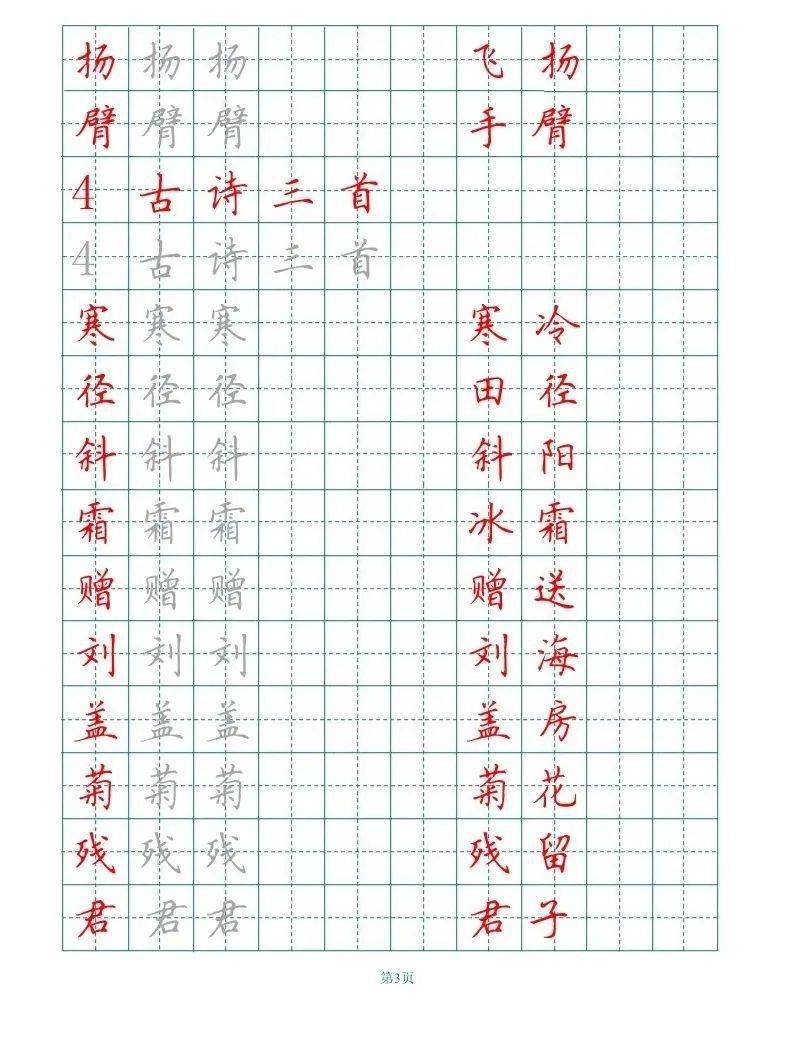 扬 扬 扬 飞 扬
臂 臂 臂 手 臂
4 古 诗 三 首
4 古 诗 三 首
寒 寒 寒 寒 冷
径 径 径 田 径
斜 斜 斜 斜 阳
霜 霜 霜 冰 霜
赠 赠 赠 赠 送
刘 刘 刘 刘 海
盖 盖 盖 盖 房
菊 菊 菊 菊 花
残 残 残 残 留
君 君 君 君 子
第3页